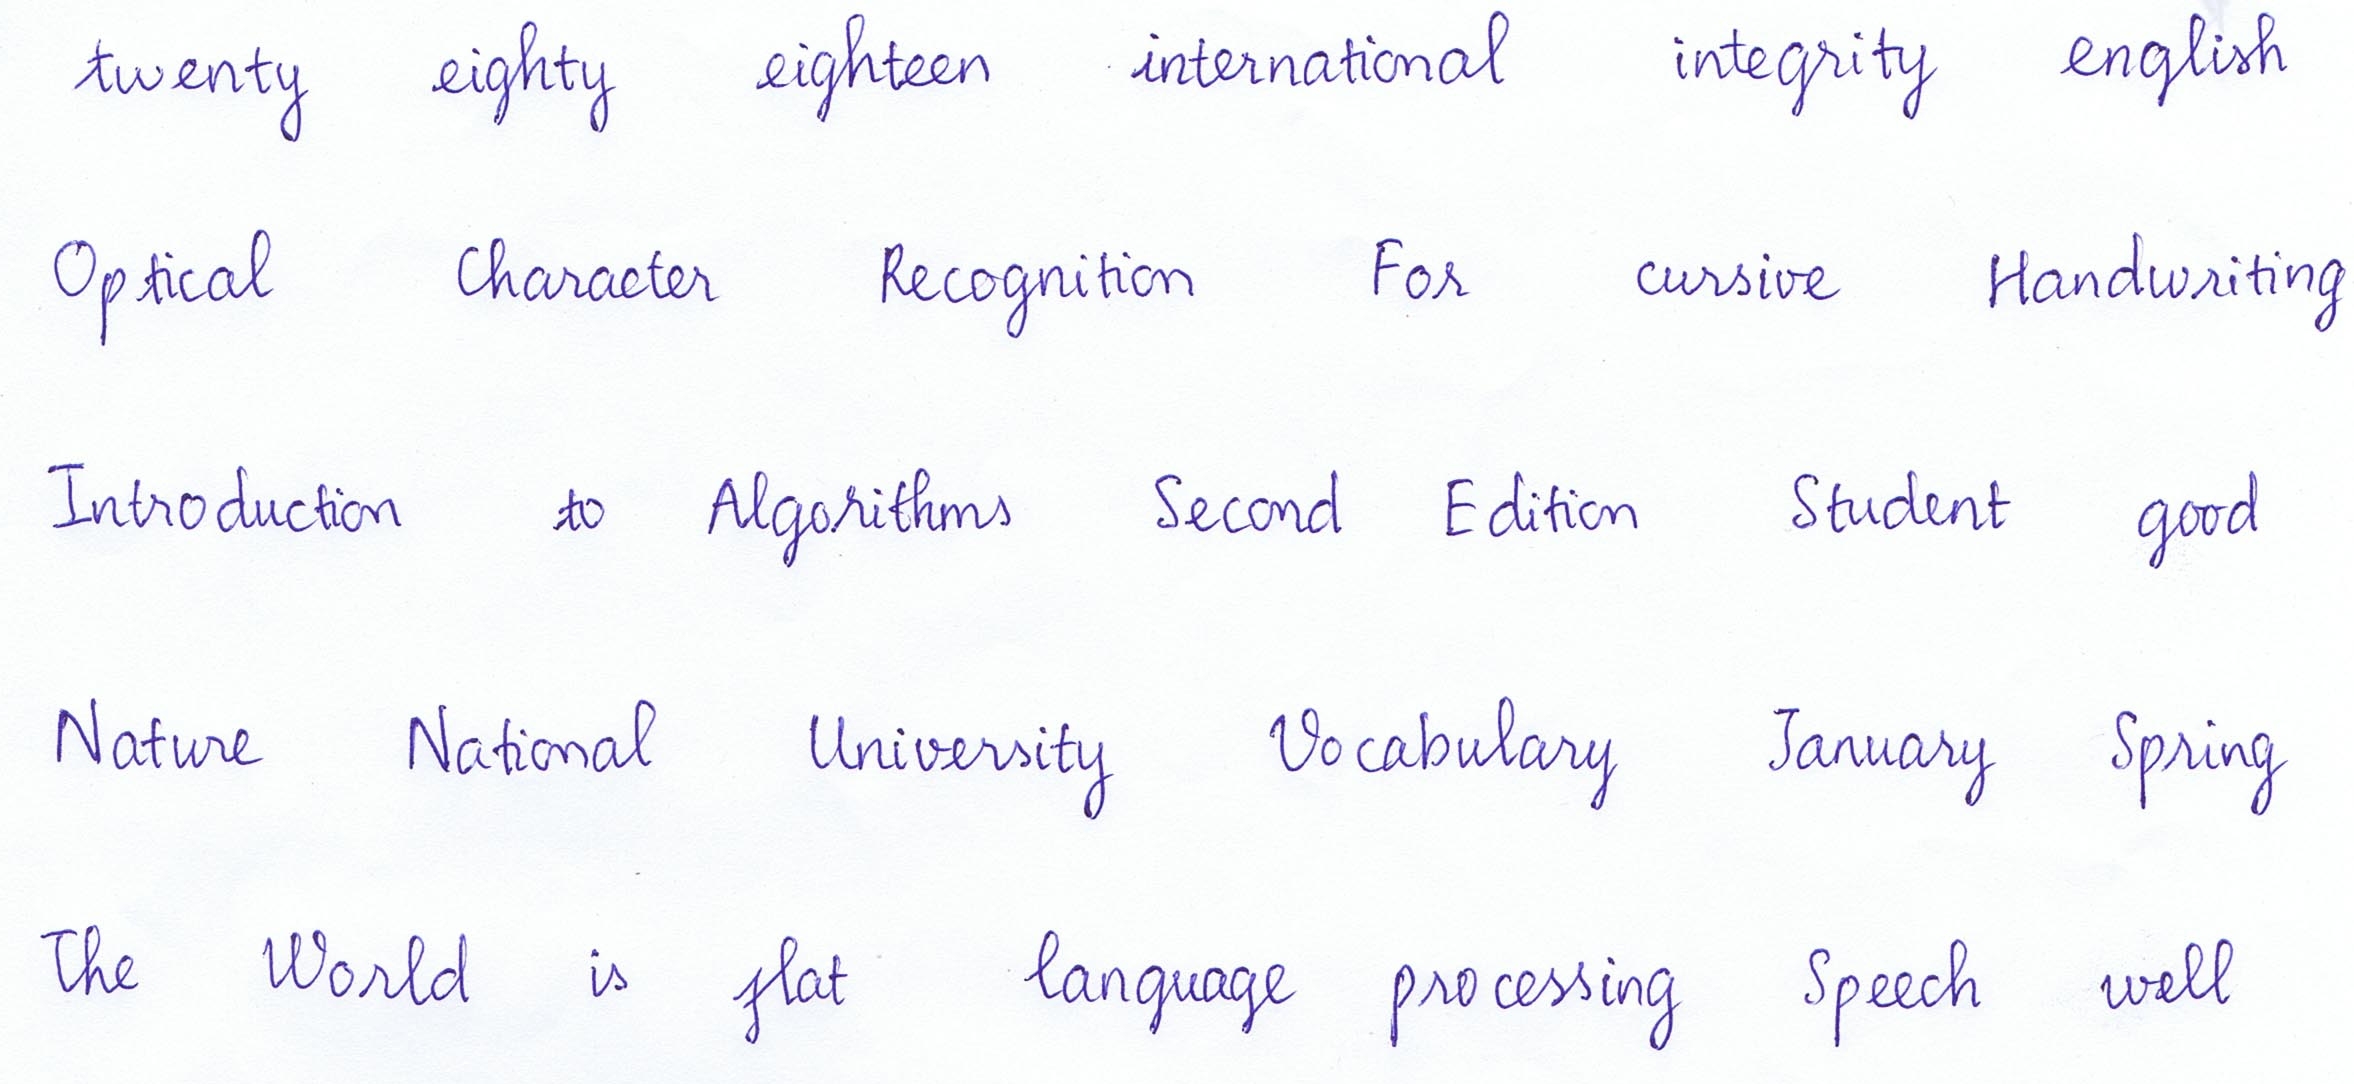 twenty eighty eighteen international integrity english
Optical Character Recognition For cursive Handwriting
Introduction to Algorithms Second Edition Student good
Nature National University Vocabulary January Spring
The World is flat language processing Speech well